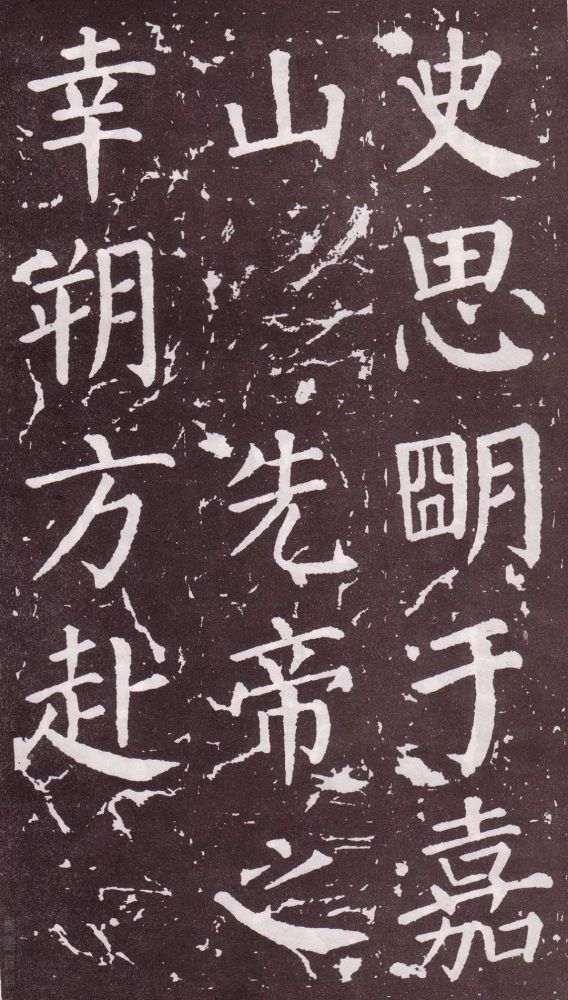 史思明于嘉
山先帝之
幸朔方赴